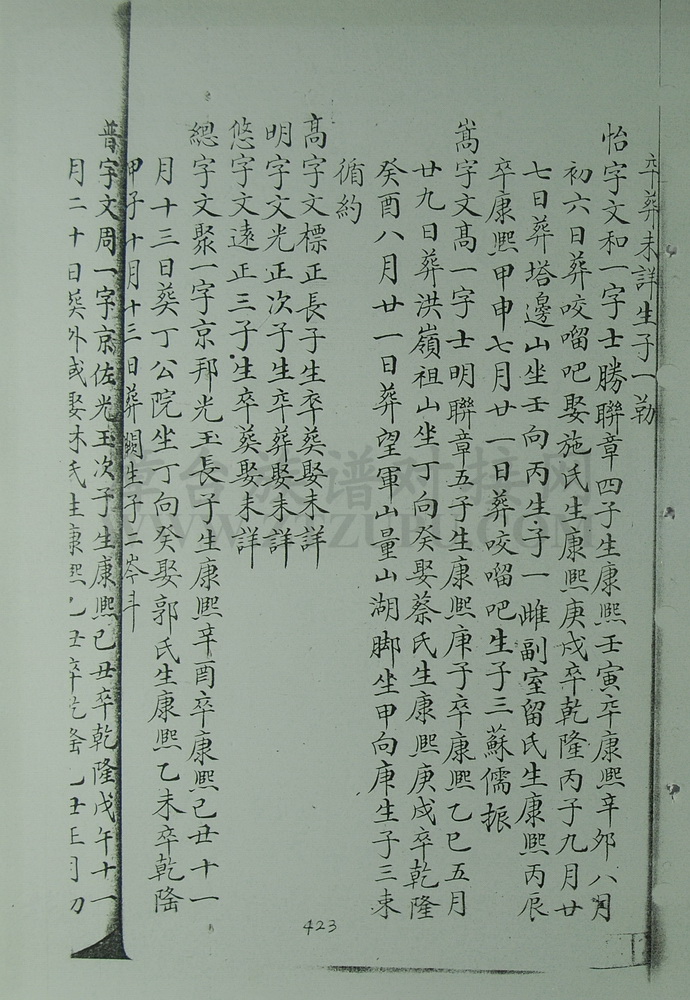 卒葬未詳生子一勒
怡字文和一字士勝聯章四子生康熙壬寅卒康熙辛卯八月
初六日葬咬𠺕吧娶施氏生康熙庚戍卒乾隆丙子九月廿
七日葬塔邊山坐壬向丙生子一雎副室留氏生康熙丙辰
卒康熙甲申七月廿一日葬咬𠺕吧生子三蘇儒振
嵩字文髙一字士明聯章五子生康熙庚子卒康熙乙巳五月
廿九日葬洪嶺祖山坐丁向癸娶蔡氏生康熙庚戍卒乾隆
癸酉八月廿一日葬望軍山量山湖脚坐甲向庚生子三束
循約
髙字文標正長子生卒葬娶未詳
明字文光正次子生卒葬娶未詳
悠字文遠正三子生卒葬娶未詳
緫字文聚一字京邦光玉長子生康熙辛酉卒康熙己丑十一
月十三日葬丁公院坐丁向癸娶郭氏生康熙乙未卒乾隆
甲子十月十三日葬生子二岑斗
普字文周一字京佐光玉次子生康熙己丑卒乾隆戊午十一
月二十日葬外或娶林氏生康熙乙丑卒乾隆
423